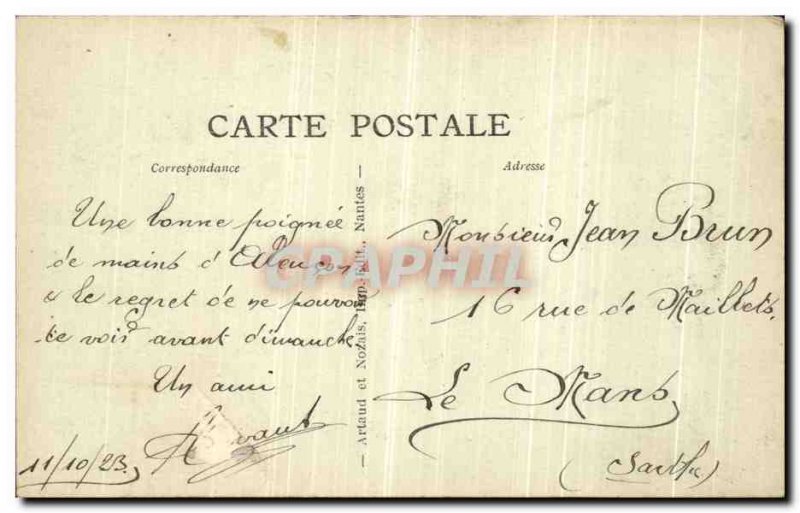 CARTE POSTALE
Correspondance
Adresse
Une bonne poignée
de mains d'Alençon
le regret de ne pouvoir
te voir avant dimanche
Un ami
11/10/23
— Artaud et Nozais, Imp.-Edit., Nantes —
Monsieur Jean Brun
16 rue de Maillets
Le Mans
(Sarthe)
CPAPHIL